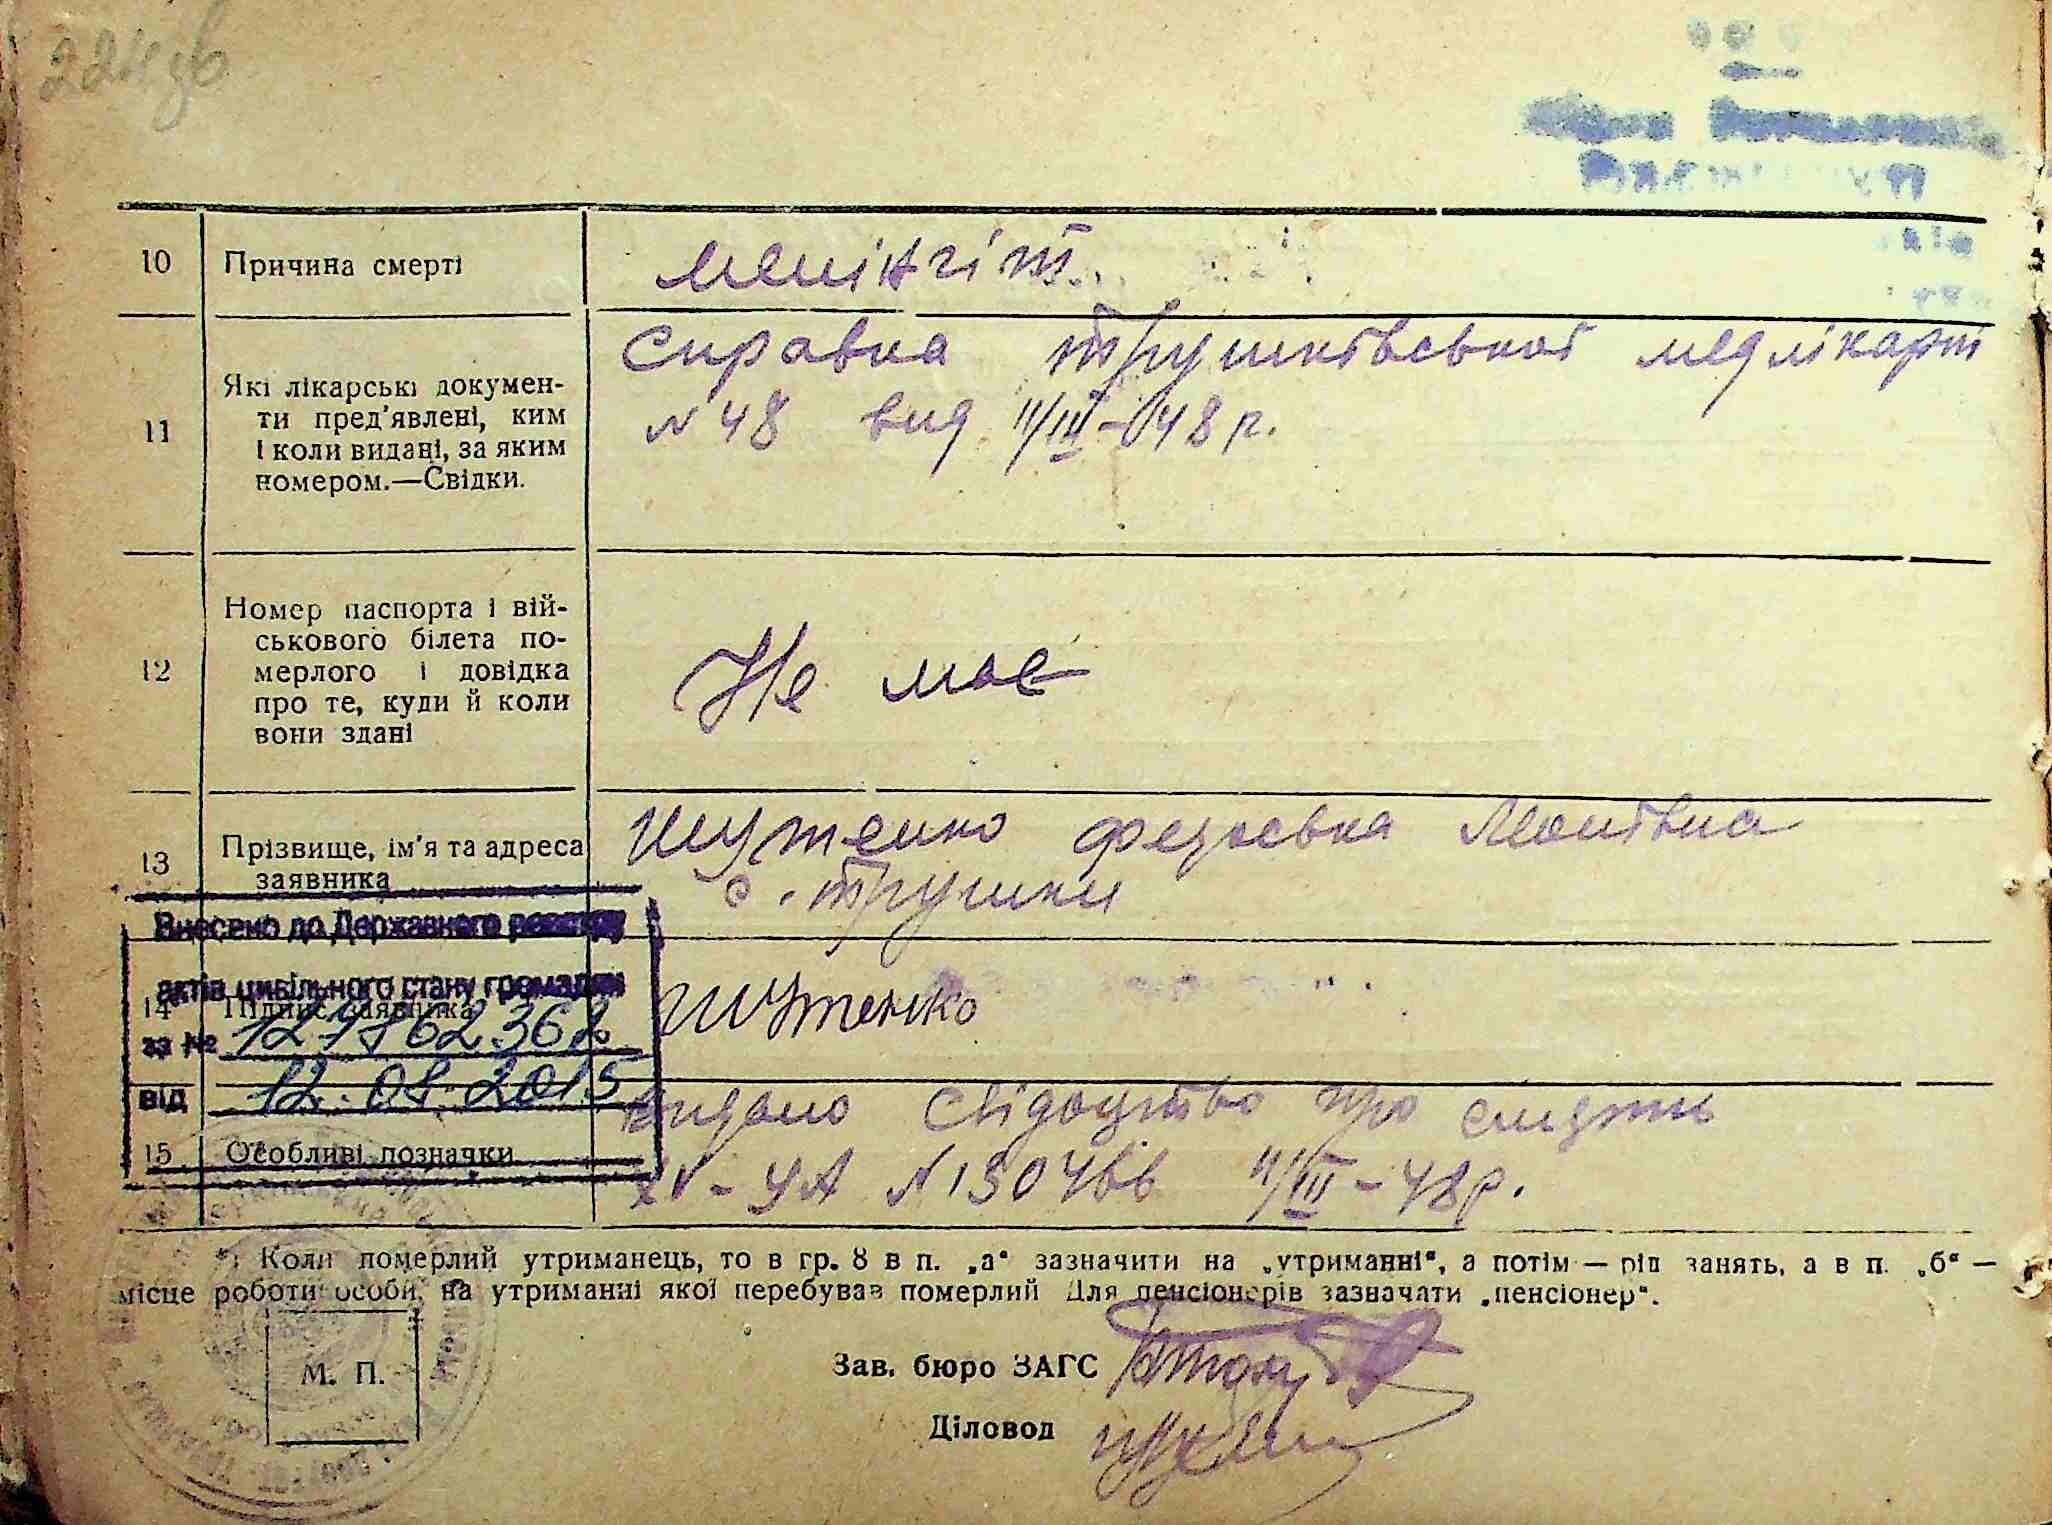 224зв
10 Причина смерті
менінгіт.
11 Які лікарські докумен-
ти пред'явлені, ким
і коли видані, за яким
номером.—Свідки.
Справка Трушківської медлікарні
№ 48 вид 11/III-48 р.
12 Номер паспорта і вій-
ськового білета по-
мерлого і довідка
про те, куди й коли
вони здані
Не має
13 Прізвище, ім'я та адреса
заявника
Шутенко
с. Трушки
Внесено до Державного реєстру
актів цивільного стану громадян
14 Підпис заявника
Шутенко
за №
від
видано свідоцтво про смерть
15 Особливі позначки
11/III-48р.
*) Коли померлий утриманець, то в гр. 8 в п. „а“ зазначити на „утриманні“, а потім — рід занять, а в п. „б“ —
місце роботи особи, на утриманні якої перебував померлий Для пенсіонерів зазначати „пенсіонер“.
М. П.
Зав. бюро ЗАГС
Діловод